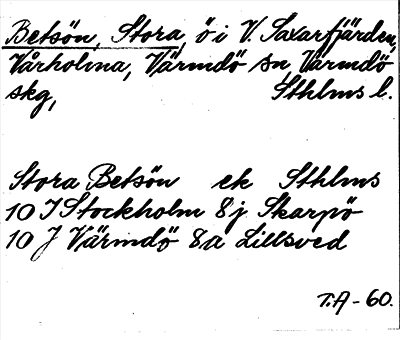 Betsön, Stora, ö i V. Saxarfjärden,
Vårholma, Värmdö sn, Värmdö
skg, Sthlms l.
Stora Betsön ek Sthlms
10 I Stockholm 8 j Skarpö
10 J Värmdö 8 a Lillsved
T.A - 60.